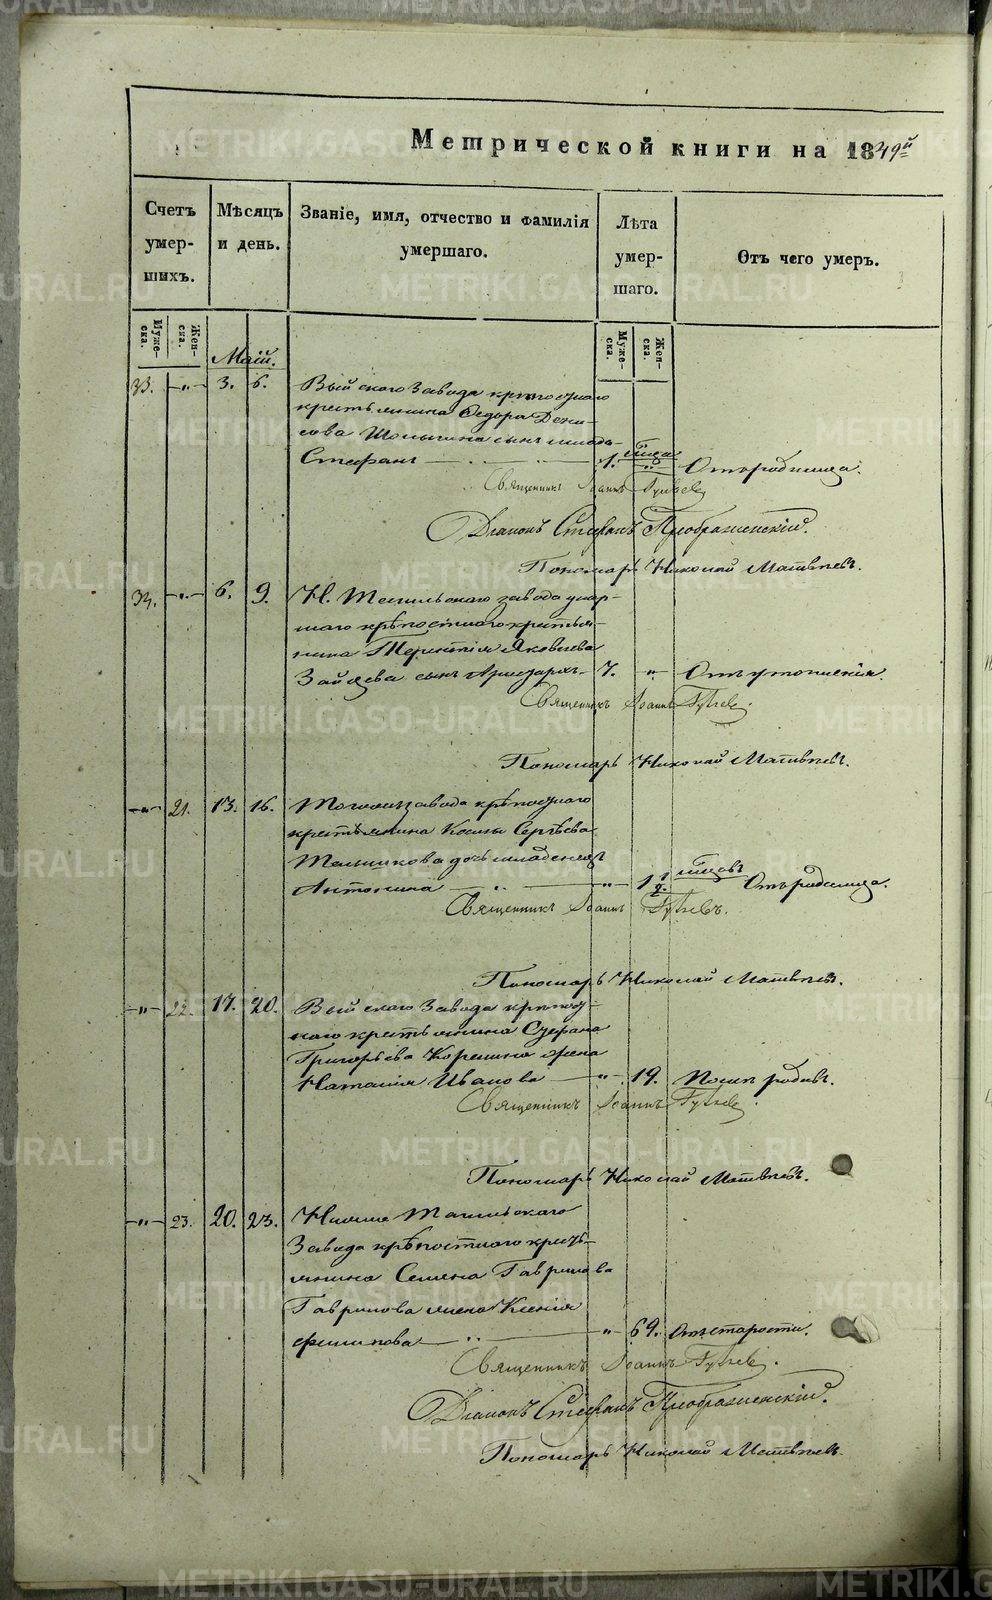 Метрической книги на 1849й
Счетъ умер- шихъ.
Мѣсяцъ и день.
Званіе, имя, отчество и фамилія умершаго.
Лѣта умер- шаго.
Отъ чего умеръ.
Муже- ска.
Жен- ска.
Муже- ска.
Жен- ска.
Маій.
33. „ 3. 6. Выйскаго Завода крѣпостнаго
крестьянина Ѳедора Дени-
сова сынъ млад-
Стефанъ 1. Отъ родимца.
Священникъ Іоаннъ
Діаконъ Стефанъ Преображенскій.
Пономарь Николай Матвѣевъ.
34. „ 6. 9. Н. Тагильскаго завода умер-
шаго крѣпостнаго крестья-
нина Терентія Яковлева
Зайцева сынъ 7. „ Отъ утопленія.
Священникъ Іоаннъ
Пономарь Николай Матвѣевъ.
„ 21. 13. 16. Тогоже завода крѣпостнаго
крестьянина Космы Сергѣева
Мельникова дочь младенецъ
Антонина „ „ 1 1/2. мѣсецъ Отъ родимца.
Священникъ Іоаннъ
Пономарь Николай Матвѣевъ.
„ 22. 17. 20. Выйскаго Завода крѣпост-
наго крестьянина Стефана
Григорьева Корепина жена
Наталія Иванова „ 19. Послѣ родовъ.
Священникъ Іоаннъ
Пономарь Николай Матвѣевъ.
„ 23. 20. 23. Нижне Тагильскаго
Завода крѣпостнаго кресть-
янина Семена Гаврилова
Гаврилова жена Ксенія
Филипова „ „ 69. Отъ старости.
Священникъ Іоаннъ
Діаконъ Стефанъ Преображенскій.
Пономарь Николай Матвѣевъ.
METRIKI.GASO-URAL.RU